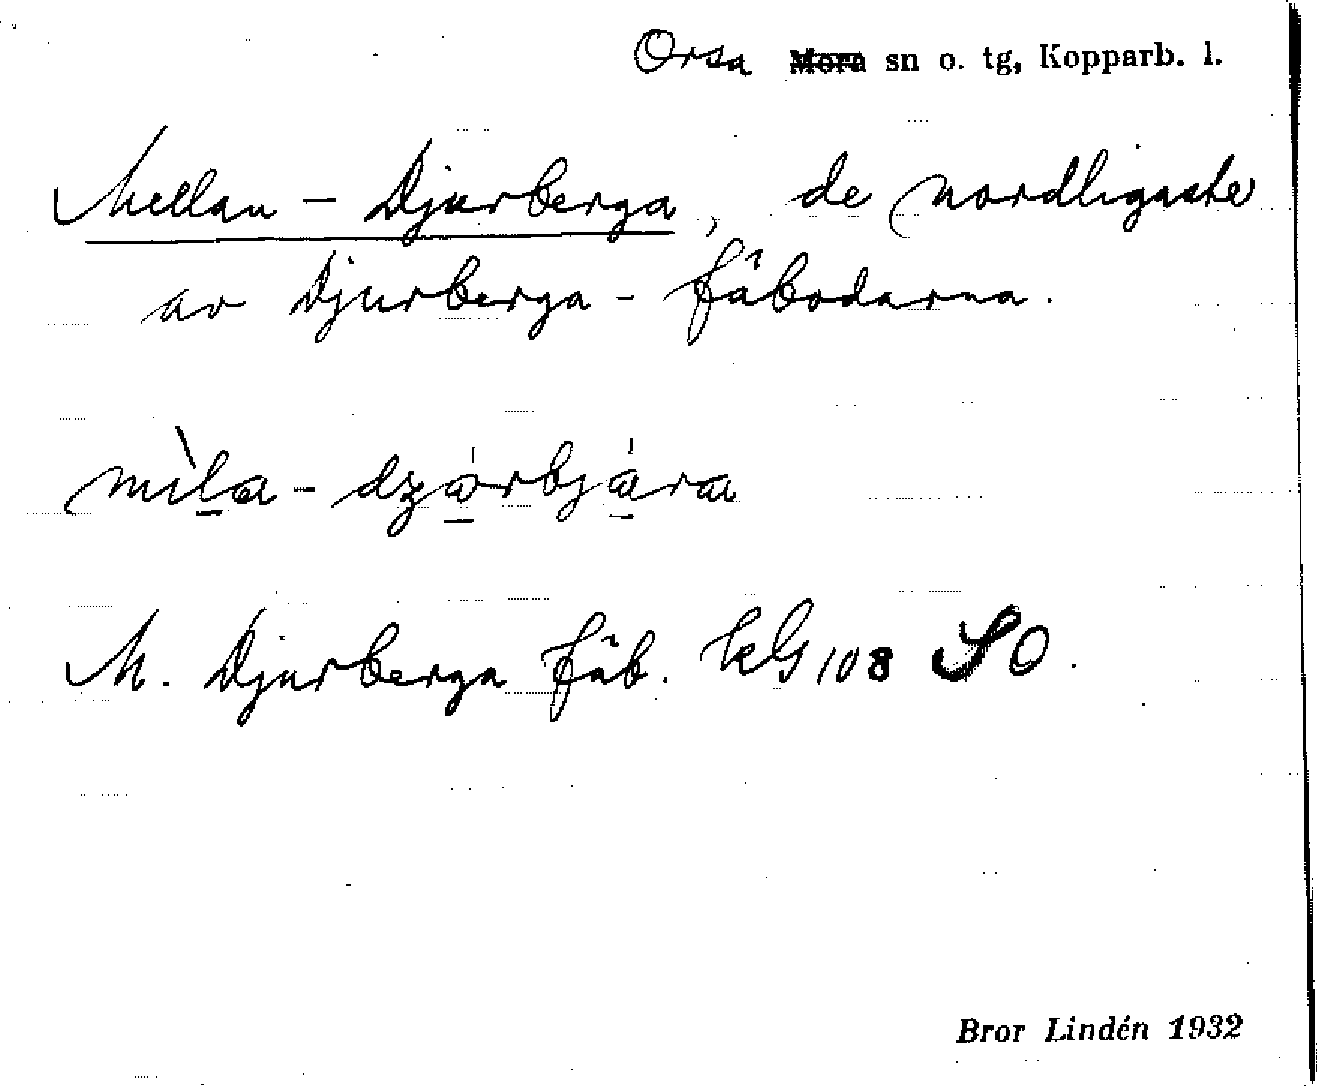 Orsa ~~Mora~~ sn o. tg, Kopparb. l.
Mellan - Djurberga, de nordligaste
av Djurberga - fäbodarna.
mìla - dzárbjára
M. Djurberga fäb. kG 108 SO.
Bror Lindén 1932